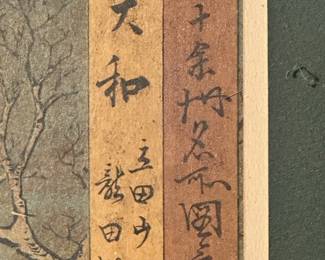 十余州名所圖
大和
立田山
龍田